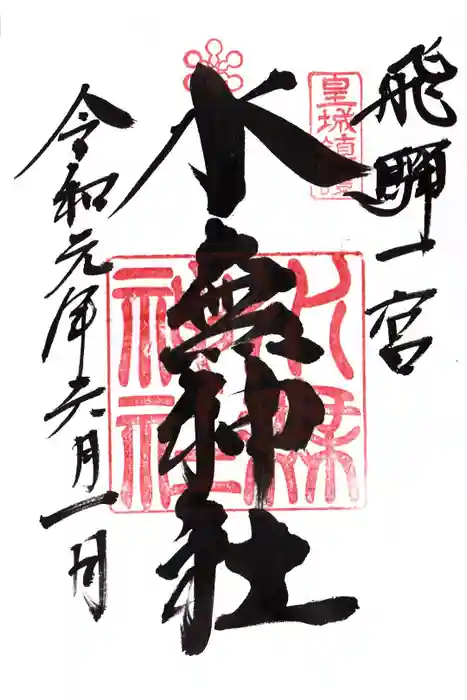 飛騨一宮
皇城鎮護
水無神社
水無神社
令和元年六月一日